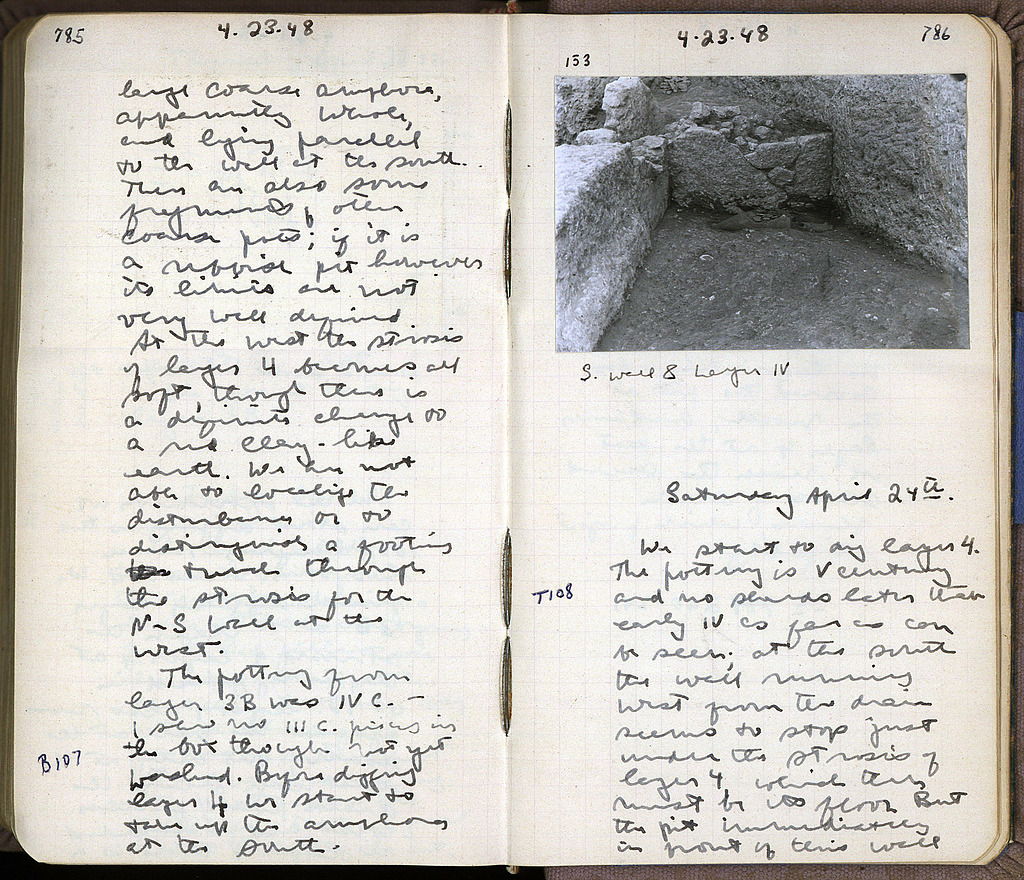 785
4.23.48
large coarse amphora,
apparently whole,
and lying parallel
to the wall at the south.
There are also some
fragments of other
coarse pots; if it is
a rubbish pit however
its limits are not
very well defined
At the west the strosis
of layer 4 becomes all
soft, though there is
a definite change to
a red clay-like
earth. We are not
able to localize the
disturbance or to
distinguish a footing
trench through
the strosis for the
N-S wall at the
west.
The pottery from
layer 3B was IV C. –
I saw no III C. pieces in
the lot though not yet
B107
washed. Before digging
layer 4 we start to
take up the amphoras
at the south.
4.23.48
786
153
S. wall & Layer IV
Saturday April 24th.
We start to dig layer 4.
The pottery is V century
T108
and no sherds later than
early IV as far as can
be seen; at the south
the wall running
west from the drain
seems to stop just
under the strosis of
layer 4 which then
must be its floor But
the pit immediately
in front of this wall